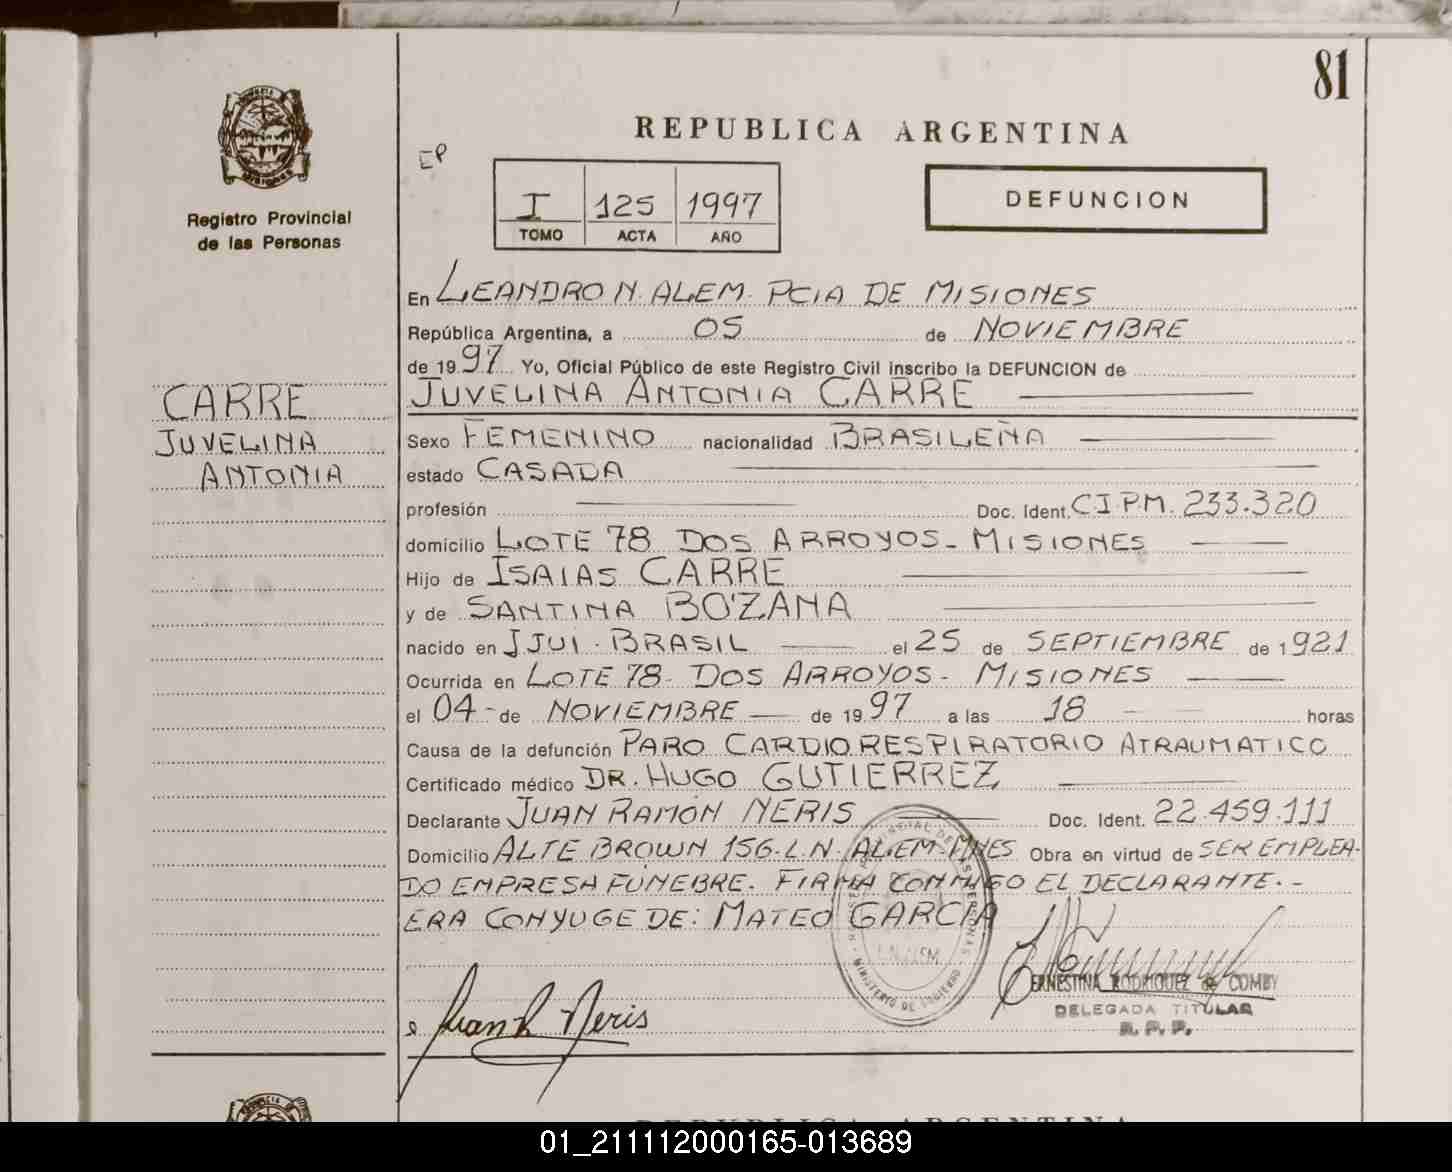 81
REPUBLICA ARGENTINA
EP
I 125 1997
TOMO ACTA AÑO
DEFUNCION
PROVINCIA
MISIONES
Registro Provincial
de las Personas
CARRE
JUVELINA
ANTONIA
En LEANDRO N. ALEM. PCIA DE MISIONES
República Argentina, a 05 de NOVIEMBRE
de 1997 Yo, Oficial Público de este Registro Civil inscribo la DEFUNCION de
JUVELINA ANTONIA CARRE
Sexo FEMENINO nacionalidad BRASILEÑA
estado CASADA
profesión Doc. Ident. C.I.P.M. 233.320
domicilio LOTE 78 DOS ARROYOS - MISIONES
Hijo de ISAIAS CARRE
y de SANTINA BO'ZANA
nacido en IJUI - BRASIL el 25 de SEPTIEMBRE de 1921
Ocurrida en LOTE 78 - DOS ARROYOS - MISIONES
el 04 - de NOVIEMBRE de 1997 a las 18 horas
Causa de la defunción PARO CARDIORESPIRATORIO ATRAUMATICO
Certificado médico DR. HUGO GUTIERREZ
Declarante JUAN RAMÓN NERIS Doc. Ident. 22.459.111
Domicilio ALTE BROWN 156 - L.N. ALEM - MNES Obra en virtud de SER EMPLEA-
DO EMPRESA FÚNEBRE. FIRMA CONMIGO EL DECLARANTE. -
ERA CONYUGE DE: MATEO GARCÍA
REGISTRO PROVINCIAL DE LAS PERSONAS
L.N. ALEM
MINISTERIO DE GOBIERNO
Juan R Neris
ERNESTINA RODRIGUEZ de COMBY
DELEGADA TITULAR
R. P. P.
REPUBLICA ARGENTINA
01_211112000165-013689